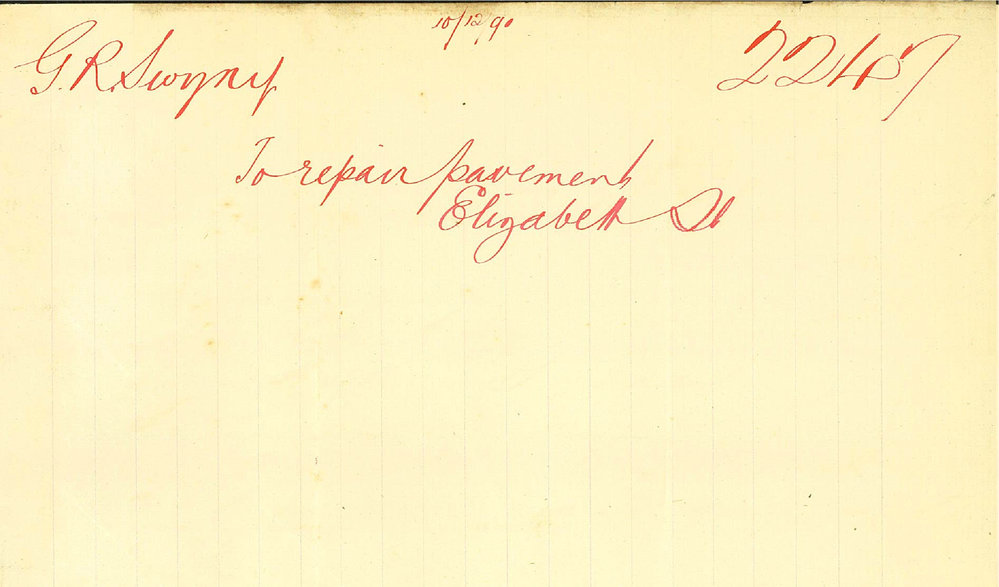 10/12/90
G. R. Swyny 2247
To repair pavement
Elizabeth St